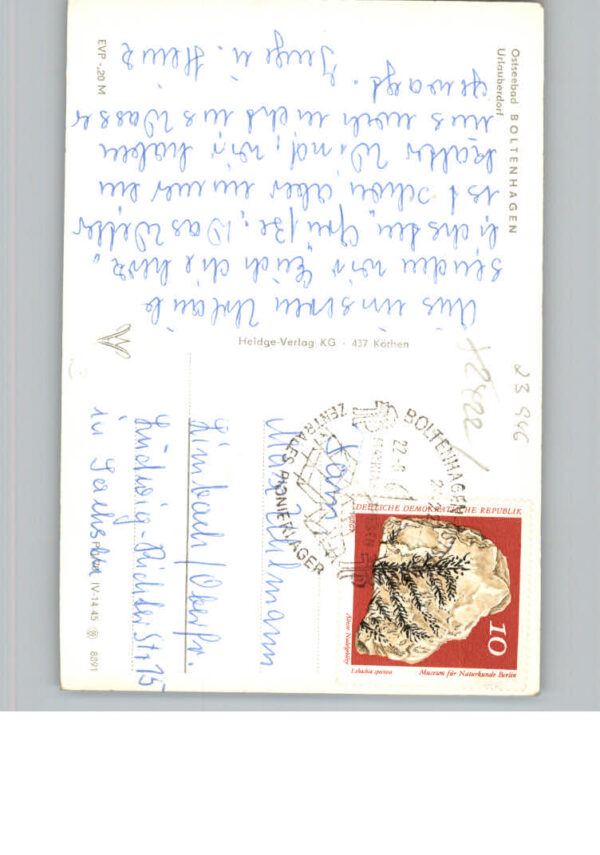 Ostseebad BOLTENHAGEN
Urlauberdorf
Aus unserem Urlaub
senden wir Euch die herz-
lichsten Grüße. Das Wetter
ist schön aber immer ein
kalter Wind, wir haben
uns noch nicht ins Wasser
gewagt. Inge u. Heinz
EVP -,20 M
Heldge-Verlag KG · 437 Köthen
IV-14-45
8891
BOLTENHAGEN
22.-8.
ZENTRALES PIONIERLAGER
DEUTSCHE DEMOKRATISCHE REPUBLIK
10
Museum für Naturkunde Berlin
Lebachia speciosa
Fam.
Max Uhlmann
Limbach/Oberfr.
Ludwig-Richter Str 15
in Sachsen
23 946